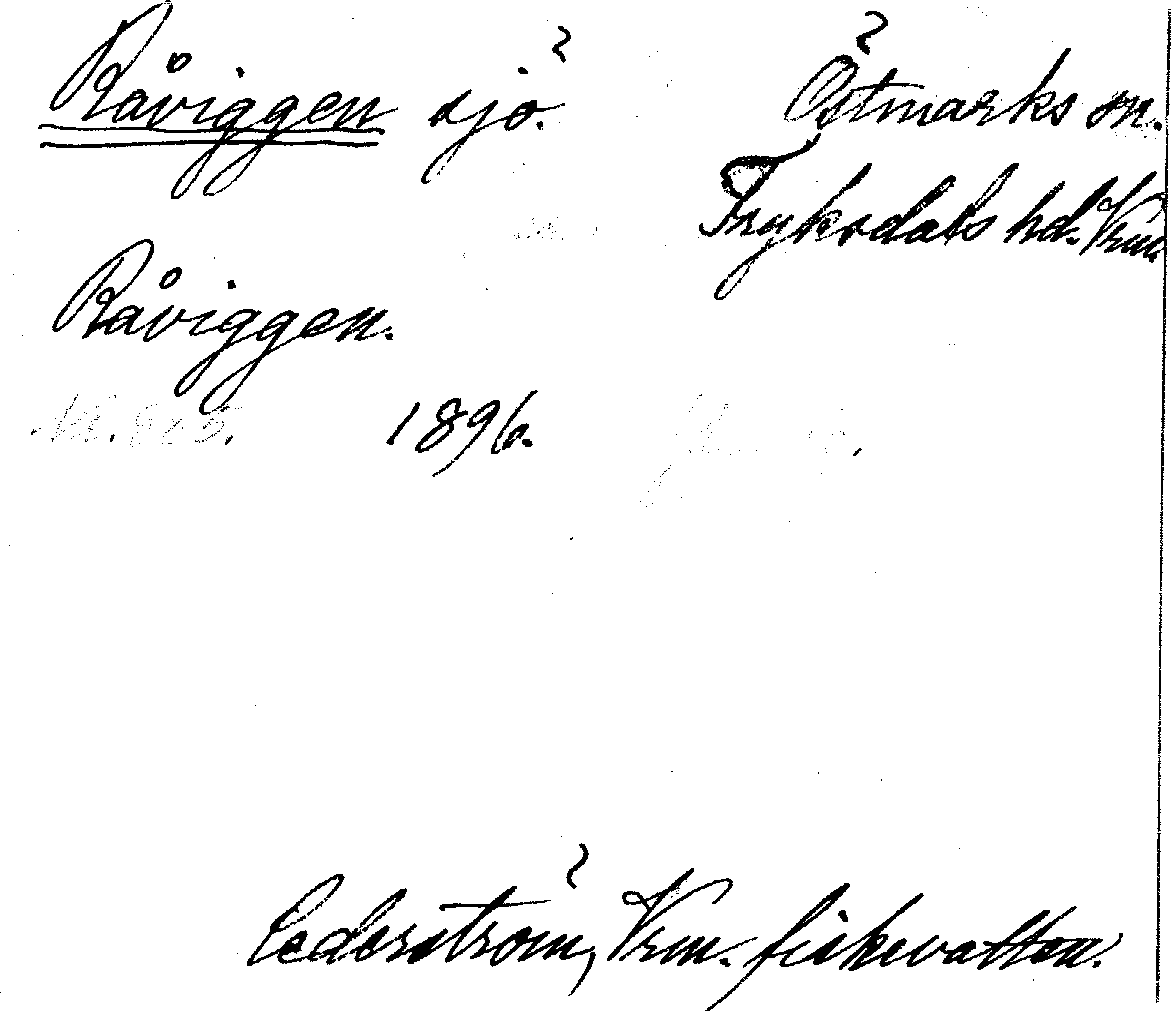 Råviggen sjö. Östmarks sn.
Fryksdals hd. Vrm.
Råviggen.
1896.
Cederström, Vrm. fiskevatten.